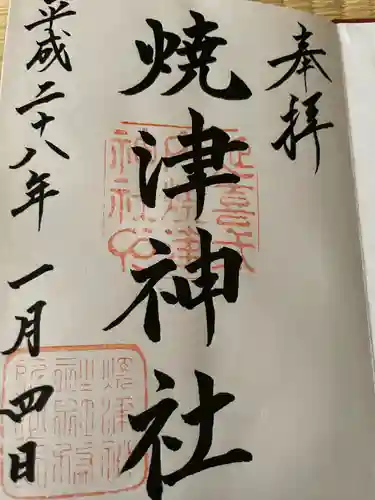 奉拝
焼津神社
平成二十八年一月四日